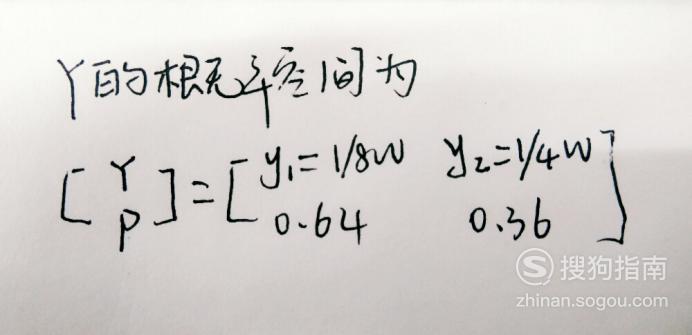 Y的概率空间为
[Y P]=[y₁=1/8W y₂=1/4W
0.64 0.36]
搜狗指南
zhinan.sogou.com